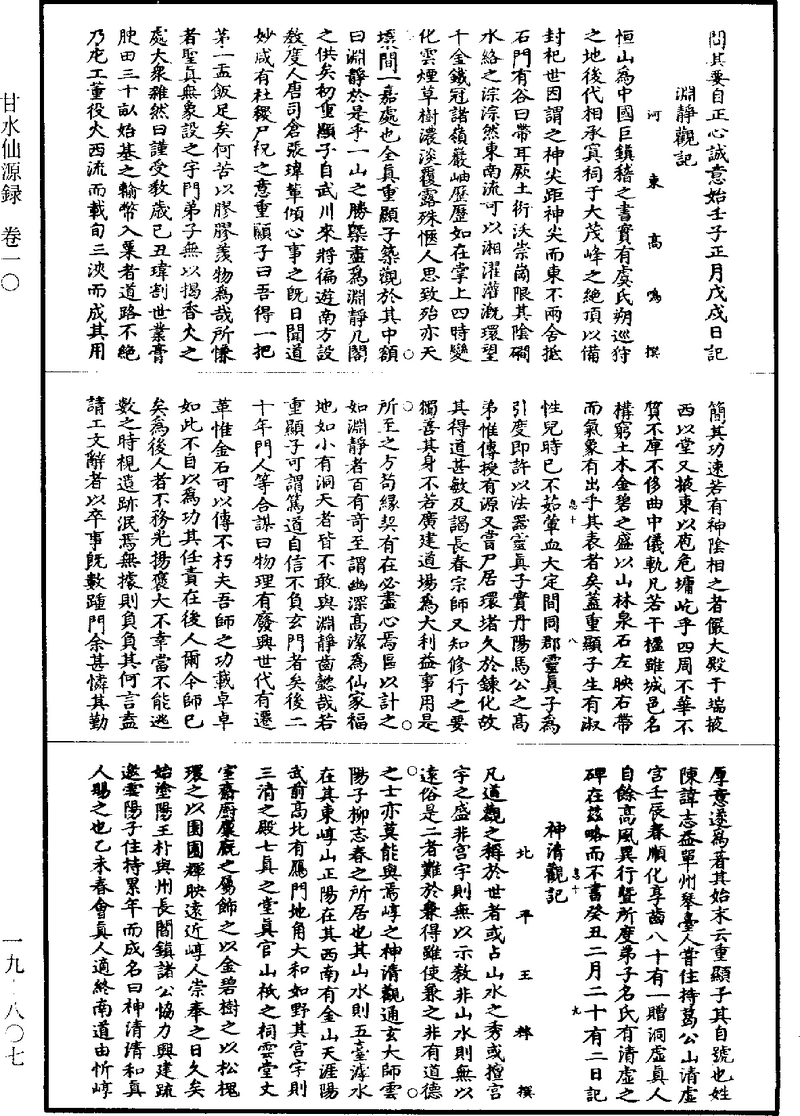 甘水仙源録　卷一〇
一九‧八〇七
問其要自正心誠意始壬子正月戊戌日記
淵靜觀記
河東高鳴撰
恒山爲中國巨鎮稽之書實有虞氏朔巡狩
之地後代相承寘祠于大茂峰之絶頂以備
封祀世因謂之神尖距神尖而東不兩舍抵
石門有谷曰帶耳厥土衍沃崇崗限其陰礀
水絡之淙淙然東南流可以湘濯灌漑環望
千金鐵冠諸嶺巖岫歷歷如在掌上四時變
化雲煙草樹濃淡覆露殊愜人思致殆亦天
壤間一嘉處也全真重顯子築觀於其中額
曰淵靜於是乎一山之勝槩盡爲淵靜几閣
之供矣初重顯子自武川來將徧遊南方設
敎度人唐司倉張瑋輩傾心事之旣日聞道
妙咸有杜稷尸祝之意重顯子曰吾得一把
茅一盂飯足矣何苦以膠膠義物爲哉所慊
者聖真無象設之宇門弟子無以揭香火之
處大衆雜然曰謹受敎歲己丑瑋割世業膏
腴田三十畝始基之輸幣入粟者道路不絶
乃庀工董役火西流而載旬三浹而成其用
簡其功速若有神陰相之者儼大殿于端披
西以堂又披東以庖危墉屹乎四周不華不
質不庳不侈曲中儀軌凡若干楹雖城邑名
構窮土木金碧之盛以山林泉石左映右帶
而氣象有出乎其表者矣蓋重顯子生有淑
性兒時已不茹葷血大定間同郡靈真子爲
引度即許以法器靈真子實丹陽馬公之高
弟惟傳授有源又嘗尸居環堵久於鍊化故
其得道甚敏及謁長春宗師又知修行之要
獨善其身不若廣建道場爲大利益事用是
所至之方苟縁契有在必盡心焉區以計之
如淵靜者百有奇至謂幽深高潔爲仙家福
地如小有洞天者皆不敢與淵靜齒懿哉若
重顯子可謂篤道自信不負玄門者矣後二
十年門人等合謀曰物理有廢興世代有遷
革惟金石可以傳不朽夫吾師之功載卓卓
如此不自以爲功其任責在後人爾今師已
矣爲後人者不務光揚襃大不幸當不能逃
數之時視遺跡泯焉無據則負負其何言盍
請工文辭者以卒事旣數踵門余甚憐其勤
厚意遂爲著其始末云重顯子其自號也姓
陳諱志益單州琴臺人嘗住持葛公山清虚
宫壬辰春順化享齒八十有一贈洞虚真人
自餘高風異行曁所度弟子名氏有清虚之
碑在兹略而不書癸丑二月二十有二日記
神清觀記
北平王粹撰
凡道觀之稱於世者或占山水之秀或擅宫
宇之盛非宫宇則無以示敎非山水則無以
遠俗是二者難於兼得雖使兼之非有道德
之士亦莫能與焉崞之神清觀通玄大師雲
陽子柳志春之所居也其山水則五臺滹水
在其東崞山正陽在其西南有金山天涯陽
武前高北有鴈門地角大和如野其宫宇則
三清之殿七真之堂真官山祇之祠雲堂丈
室齋廚廩廐之屬飾之以金碧樹之以松槐
環之以園圃輝映遠近崞人崇奉之日久矣
始塗陽王朴與州長閻鎮諸公恊力興建疏
邀雲陽子住持累年而成名曰神清清和真
人賜之也乙未春會真人適終南道由忻崞